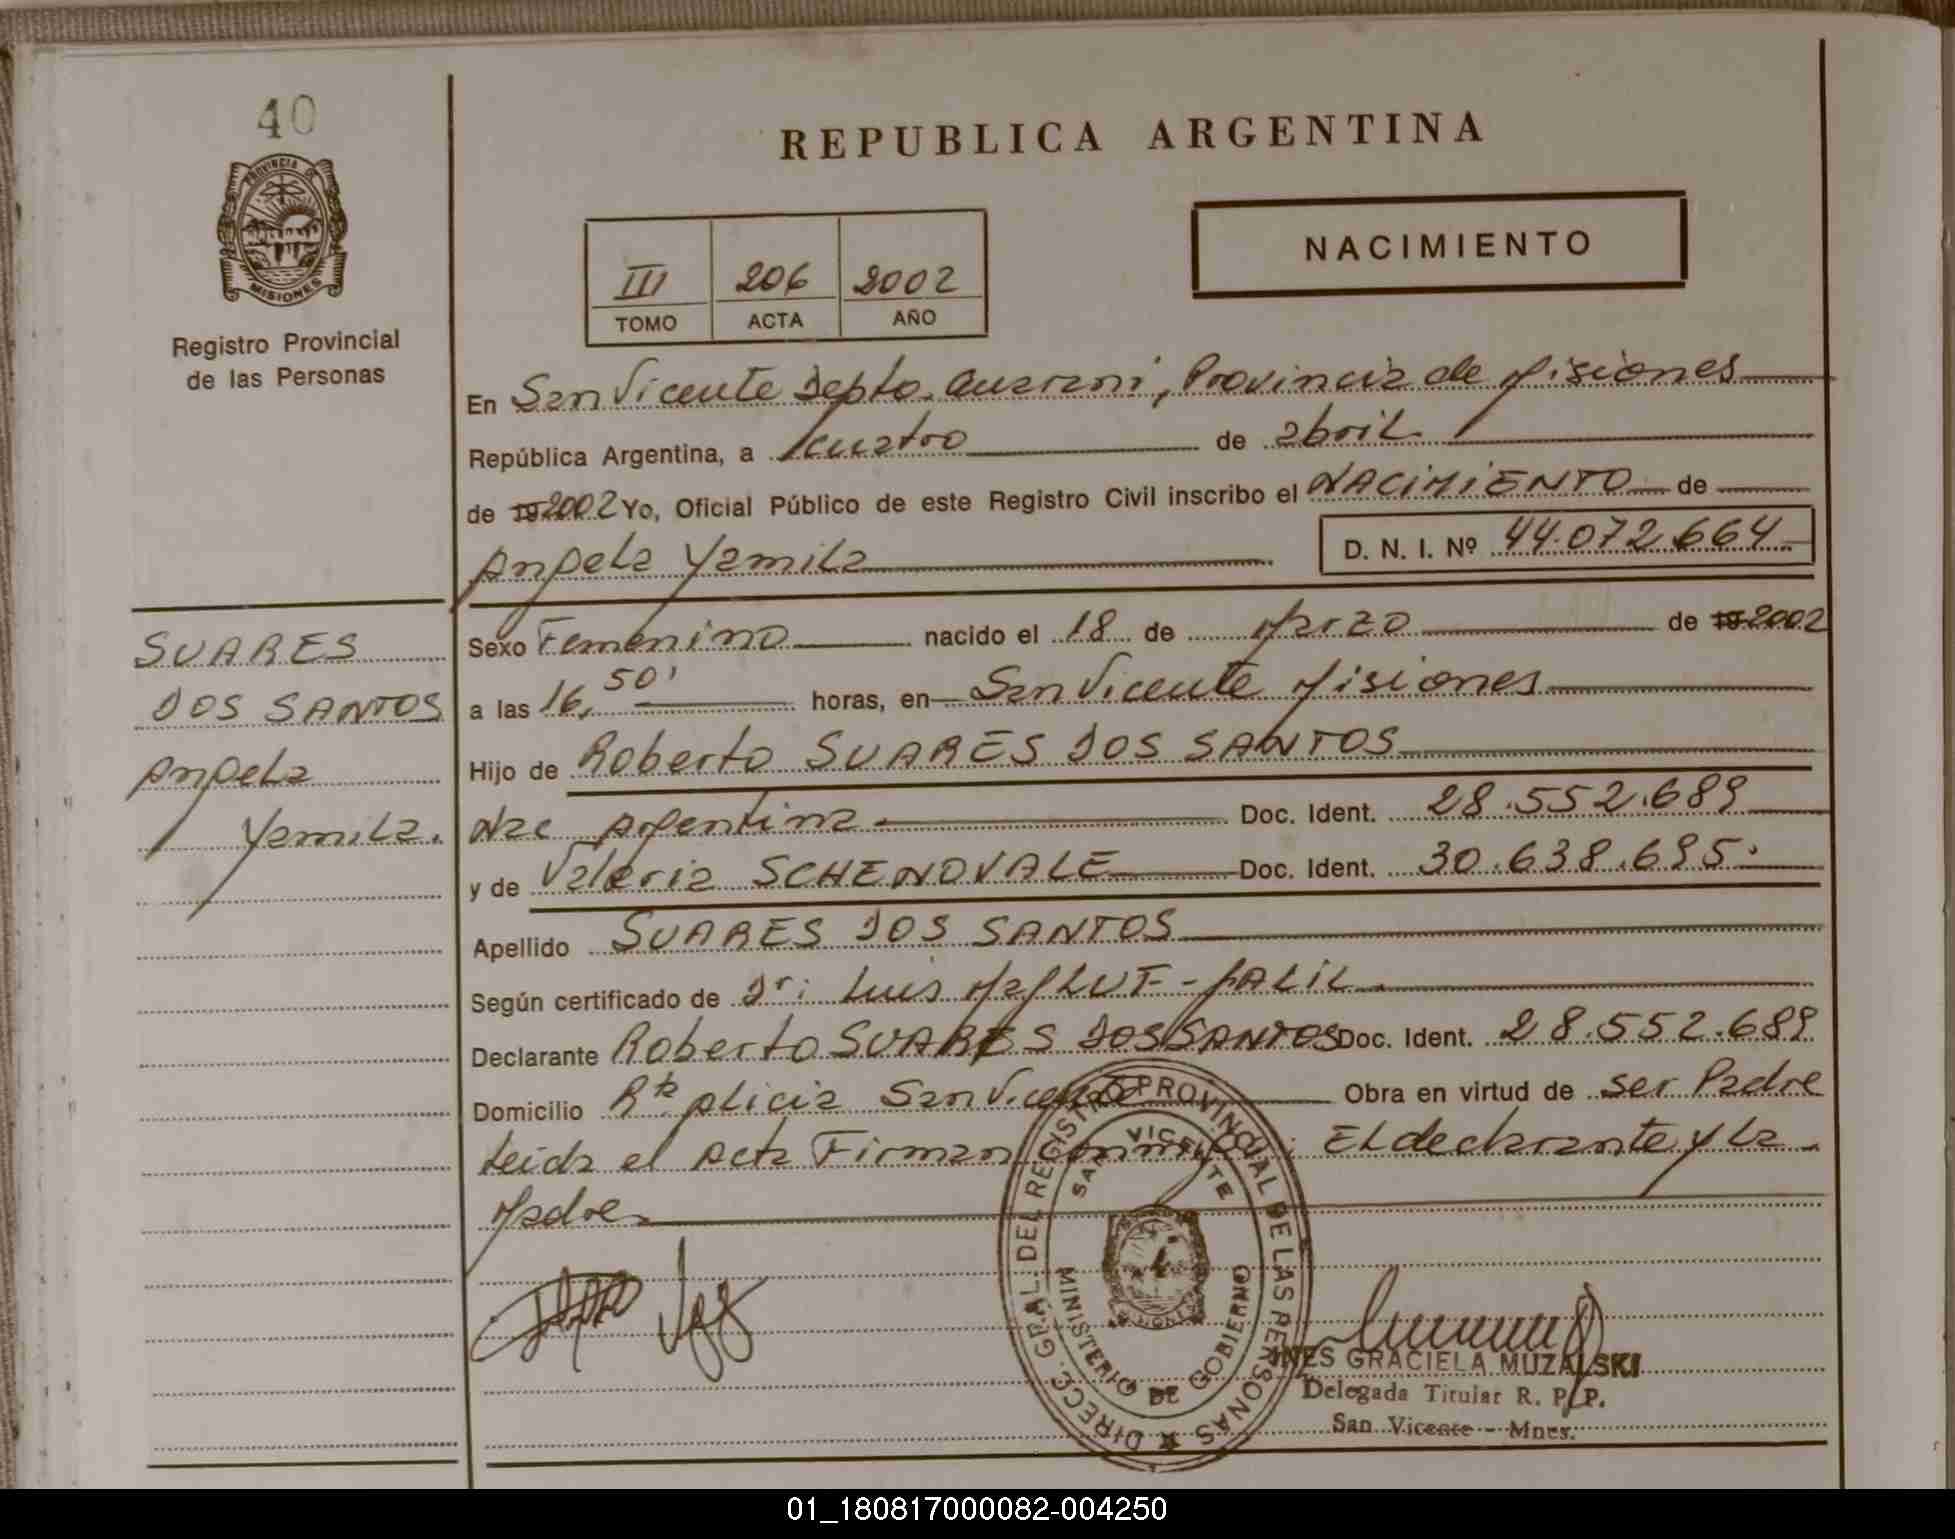 40
PROVINCIA DE
MISIONES
Registro Provincial
de las Personas
REPUBLICA ARGENTINA
NACIMIENTO
III 206 2002
TOMO ACTA AÑO
En San Vicente Depto. Guarani, Provincia de Misiones
República Argentina, a cuatro de abril
de 19 2002 Yo, Oficial Público de este Registro Civil inscribo el NACIMIENTO de
Angela Yamila D. N. I. Nº 44.072.664
SUARES
DOS SANTOS
Angela
Yamila.
Sexo Femenino nacido el 18 de Marzo de 19 2002
a las 16,50' horas, en San Vicente Misiones
Hijo de Roberto SUARES DOS SANTOS
Nac Argentina Doc. Ident. 28.552.689
y de Valeria SCHENOVALE Doc. Ident. 30.638.695.
Apellido SUARES DOS SANTOS
Según certificado de Dr: Luis
Declarante Roberto SUARES DOS SANTOS Doc. Ident. 28.552.689
Domicilio San Vicente Obra en virtud de ser Padre
Leida el Acta Firman conmigo: El declarante y La
Madre.
DIRECC. GRAL. DEL REGISTRO PROVINCIAL DE LAS PERSONAS
SAN VICENTE
MINISTERIO DE GOBIERNO
INES GRACIELA MUZALSKI
Delegada Titular R. P. P.
San Vicente - Mnes.
01_180817000082-004250